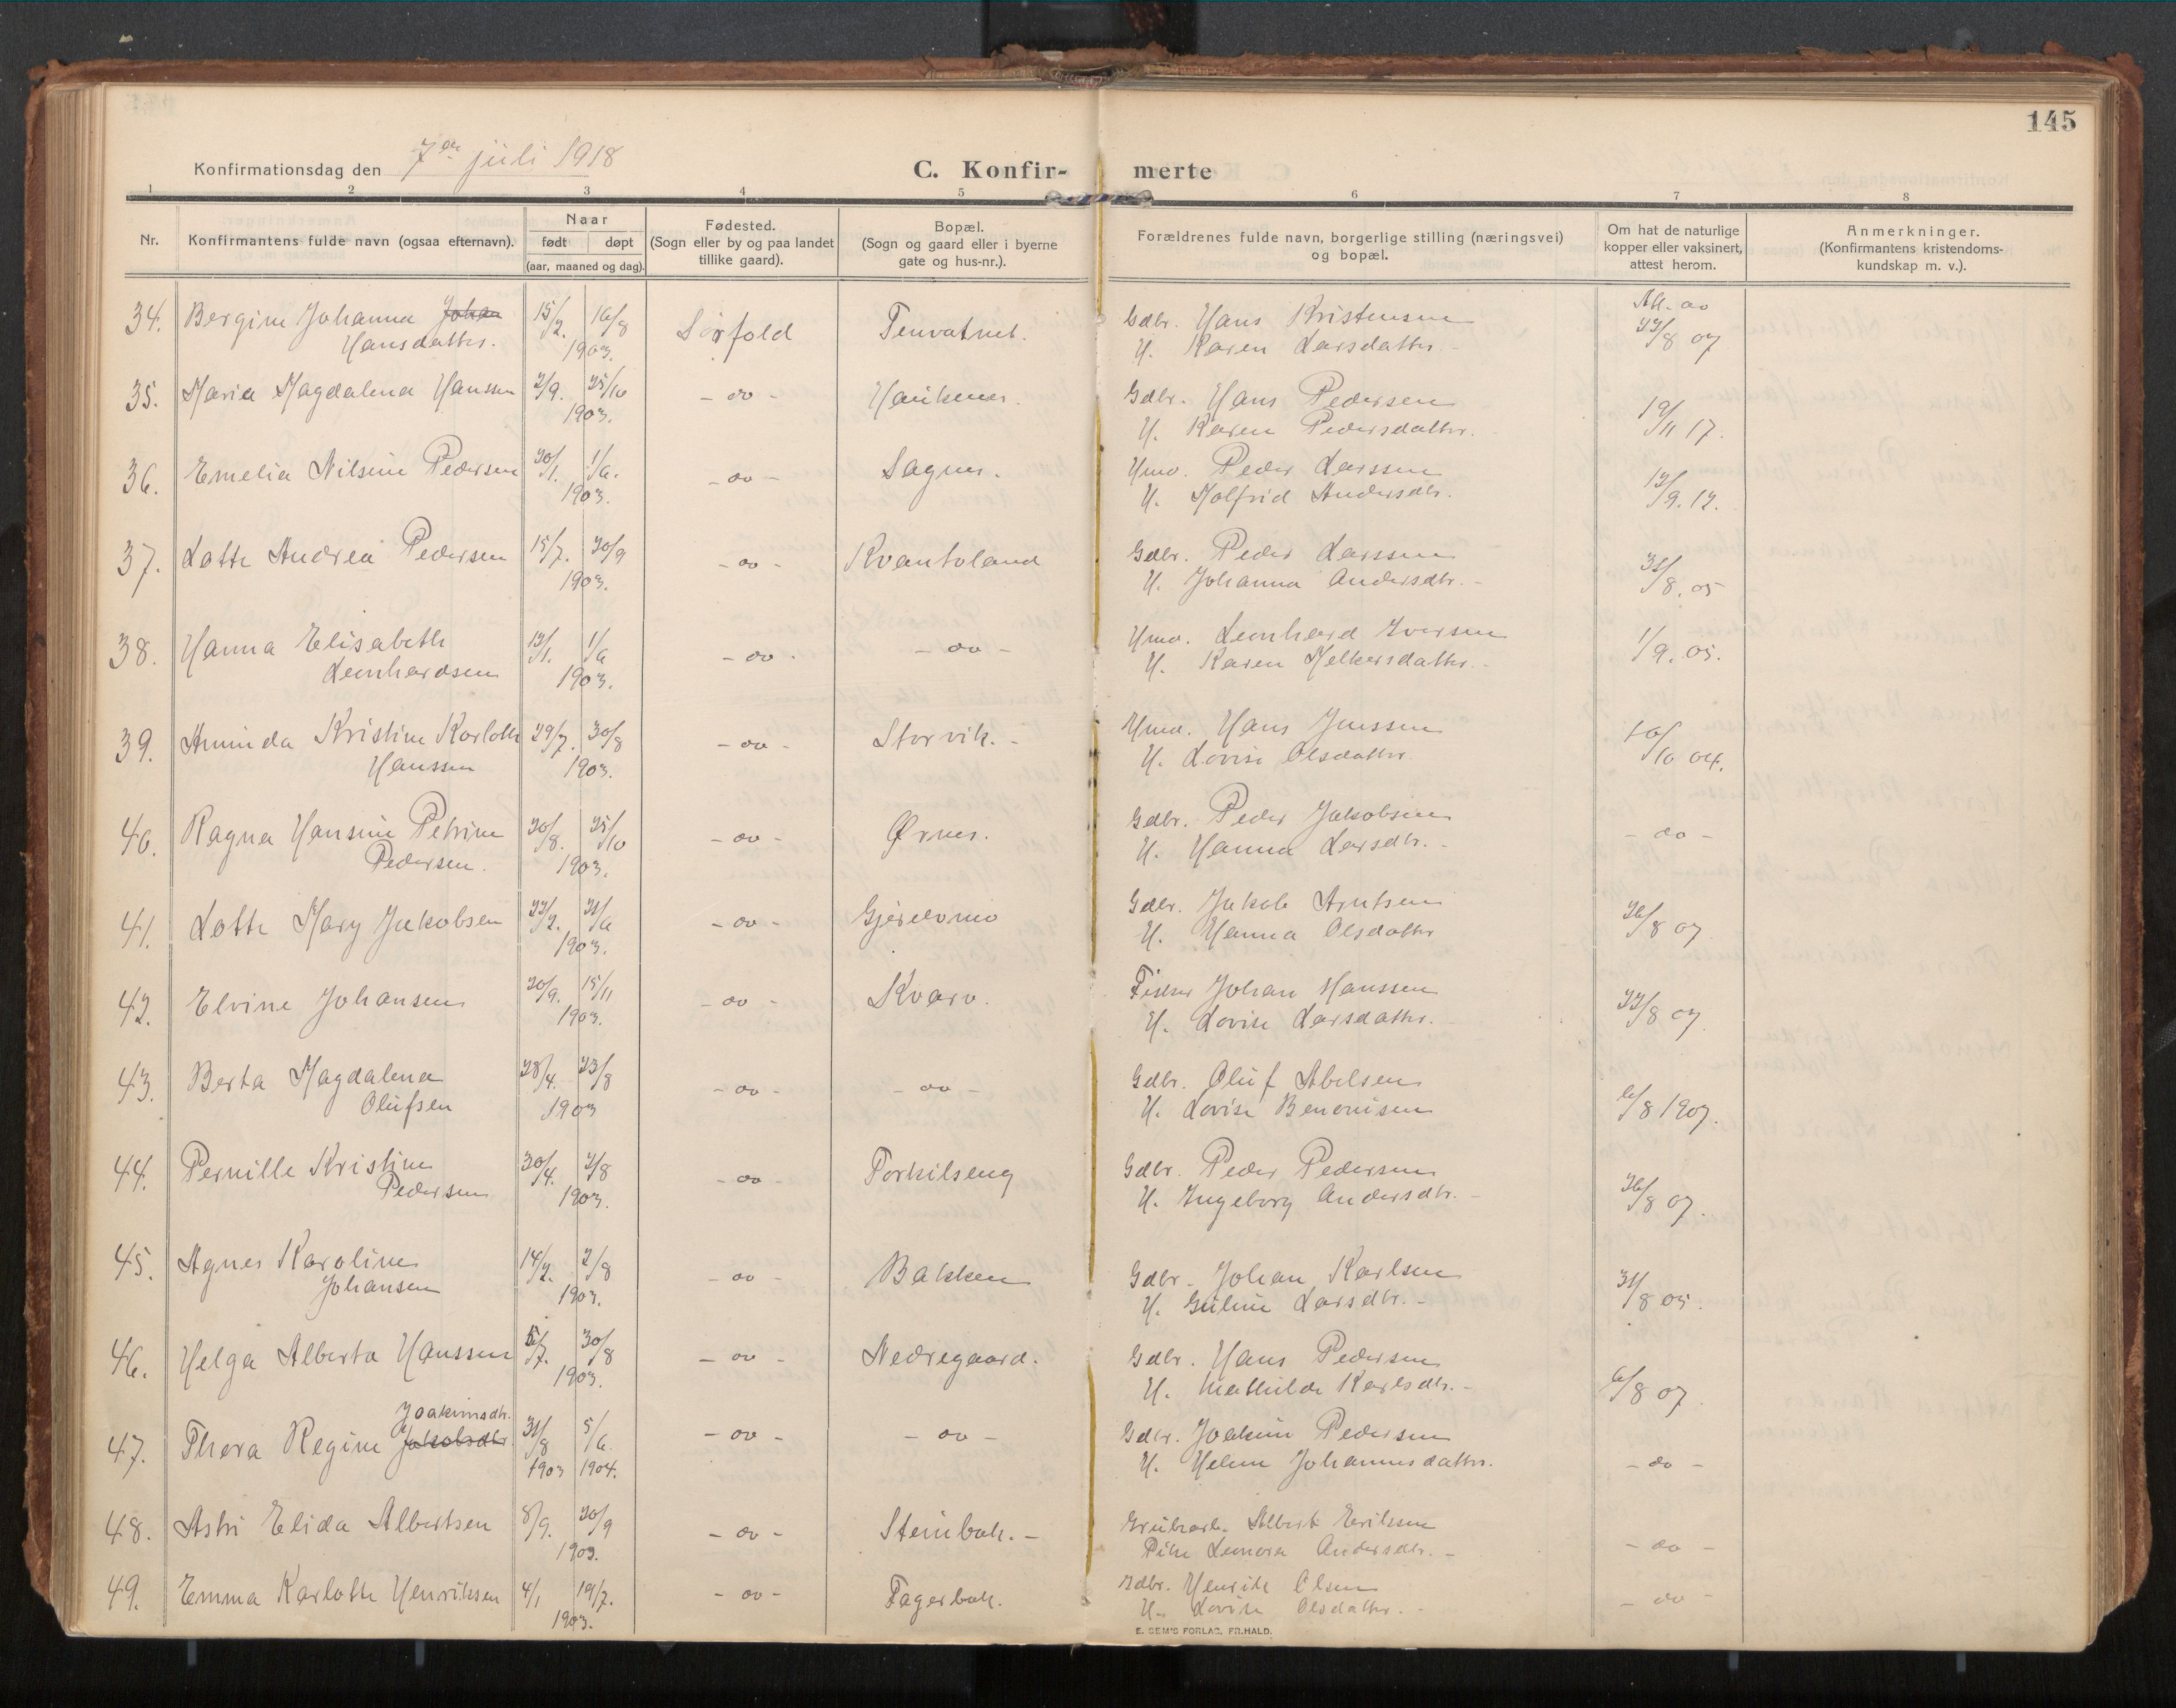 145
Konfirmationsdag den 7de juli 1918
C. Konfir- merte
1 2 3 4 5 6 7 8
Nr.
Konfirmantens fulde navn (ogsaa efternavn).
Naar
født døpt
(aar, maaned og dag).
Fødested.
(Sogn eller by og paa landet
tillike gaard).
Bopæl.
(Sogn og gaard eller i byerne
gate og hus-nr.).
Forældrenes fulde navn, borgerlige stilling (næringsvei)
og bopæl.
Om hat de naturlige
kopper eller vaksinert,
attest herom.
Anmerkninger.
(Konfirmantens kristendoms-
kundskap m. v.).
34. Bergine Johanna Johan 15/2. 16/8 Sørfold Tenvatnet. Gdbr. Hans Kristensen Att. av
Hansdatter. 1903. H. Karen Larsdatter. 23/8 07
35. Maria Magdalena Hanssen 2/9. 25/10 - do - Gdbr. Hans Pedersen
1903. H. Karen Pedersdatter. 19/11 17.
36. Emelia Nilsine Pedersen 20/1. 1/6. - do - Sagnes. Hmd. Peder Larssen
1903. H. Molfrid Andersdtr. 12/9. 17.
37. Lotte Andrea Pedersen 15/7. 20/9 - do - Kvantoland Gdbr. Peder Larssen
1903. H. Johanna Andersdtr. - 31/8. 05
38. Hanna Elisabeth 12/1. 1/6 - do - - do - Hmd. Leonhard Iversen 1/9. 05.
Leonhardsen 1903. H. Karen Melkersdatter. -
39. Aminda Kristine Karlotte 29/7. 30/8 - do - Storvik. - Hmd. Hans Jenssen 10/10 04.
Hanssen 1903. H. Lovise Olsdatter
40. Ragna Hansine Petrine 20/8. 25/10 - do - Ørnes. Gdbr. Peder Jakobsen - do -
Pedersen. 1903. H. Hanna Larsdtr. -
41. Lotte Mary Jakobsen 22/2. 21/6 - do - Gjerdvmo Gdbr. Jakob Arntsen 26/8 07
1903. H. Hanna Olsdatter
42. Elvine Johansen 20/9. 15/11 - do - Kvarv. Fisker Johan Hanssen 23/8 07
1903. H. Lovise Larsdatter.
43. Berta Magdalena 28/4. 23/8 - do - - do - Gdbr. Oluf Abelsen
Olufsen 1903 H. Lovise Benonisen 6/8 1907.
44. Pernille Kristine 30/4. 2/8 - do - Torkilseng Gdbr. Peder Pedersen
Pedersen 1903. H. Ingeborg Andersdtr. - 26/8 07.
45. Agnes Karoline 14/2. 2/8 - do - Bakken Gdbr. Johan Karlsen 31/8 05.
Johansen 1903. H. Guline Larsdtr. -
46. Helga Alberta Hanssen 5/7. 30/8 - do - Nedregaard. Gdbr. Hans Pedersen
1903. H. Mathilde Karlsdtr. - 6/8 07.
Joakimsdtr.
47. Thora Regine Jakobsdtr 31/8 5/6. - do - - do - Gdbr. Joakim Pedersen
1903 1904. H. Heline Johannesdatter. - do -
48. Astri Elida Albertsen 8/9. 20/9 - do - Steinbak. - Grubearb. Albert Eriksen
1903. Pike Leonora Andersdtr. - - do -
49. Emma Karlotte Henriksen 4/1 19/7. - do - Fagerbak. Gdbr. Henrik Olsen
1903. H. Lovise Olsdatter. - - do -
E. SEM'S FORLAG, FR.HALD.